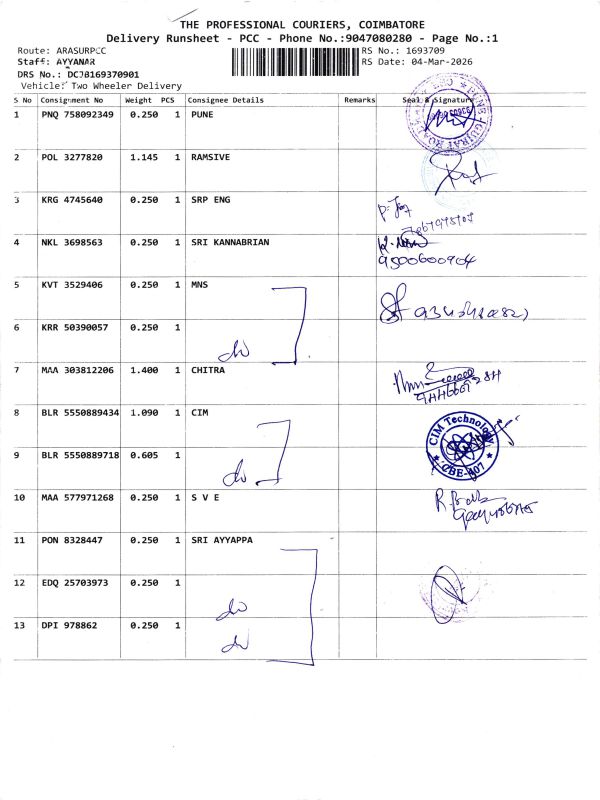 THE PROFESSIONAL COURIERS, COIMBATORE
Delivery Runsheet - PCC - Phone No.:9047080280 - Page No.:1
Route: ARASURPCC RS No.: 1693709
Staff: AYYANAR RS Date: 04-Mar-2026
DRS No.: DCJ0169370901
Vehicle: Two Wheeler Delivery
S No Consignment No Weight PCS Consignee Details Remarks Seal & Signature
1 PNQ 758092349 0.250 1 PUNE
2 POL 3277820 1.145 1 RAMSIVE
3 KRG 4745640 0.250 1 SRP ENG
4 NKL 3698563 0.250 1 SRI KANNABRIAN
9500600904
5 KVT 3529406 0.250 1 MNS
6 KRR 50390057 0.250 1
do
7 MAA 303812206 1.400 1 CHITRA
8 BLR 5550889434 1.090 1 CIM
CIM Technology
CBE-407
9 BLR 5550889718 0.605 1
do
10 MAA 577971268 0.250 1 S V E
11 PON 8328447 0.250 1 SRI AYYAPPA
12 EDQ 25703973 0.250 1
do
13 DPI 978862 0.250 1
do